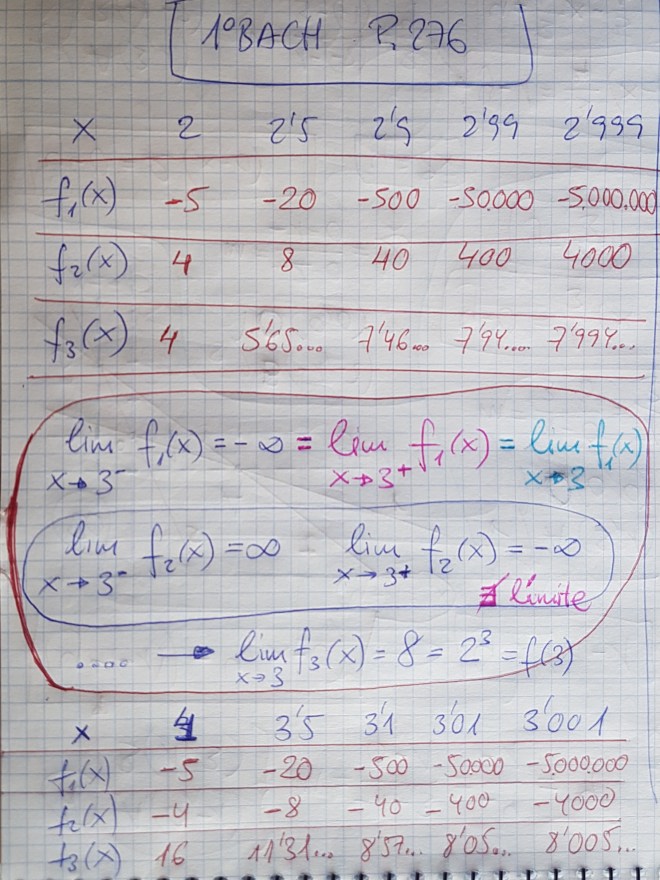 1ºBACH P. 276
x 2 2'5 2'9 2'99 2'999
f₁(x) -5 -20 -500 -50.000 -5.000.000
f₂(x) 4 8 40 400 4000
f₃(x) 4 5'65... 7'46... 7'94.... 7'994...
lim x→3⁻ f₁(x) = -∞ = lim x→3⁺ f₁(x) = lim x→3 f₁(x)
lim x→3⁻ f₂(x) = ∞ lim x→3⁺ f₂(x) = -∞
∄ límite
..... → lim x→3 f₃(x) = 8 = 2³ = f(3)
x 4 3'5 3'1 3'01 3'001
f₁(x) -5 -20 -500 -50.000 -5.000.000
f₂(x) -4 -8 -40 -400 -4000
f₃(x) 16 11'31... 8'57... 8'05... 8'005...